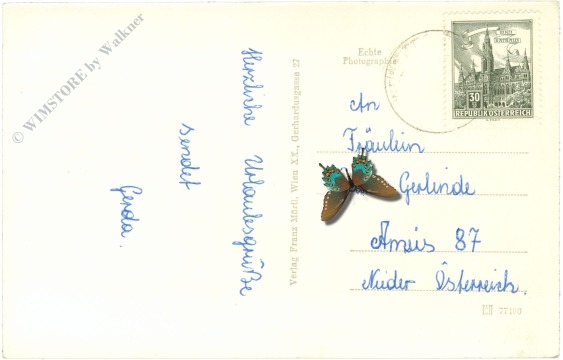 © WIMSTORE by Walkner
Herzliche Urlaubsgrüße
sendet
Gerda.
Verlag Franz Mörtl, Wien XX., Gerhardusgasse 27
Echte
Photographie
30
REPUBLIK ÖSTERREICH
An
Fräulein
Gerlinde
Ameis 87
Nieder Österreich.
77190